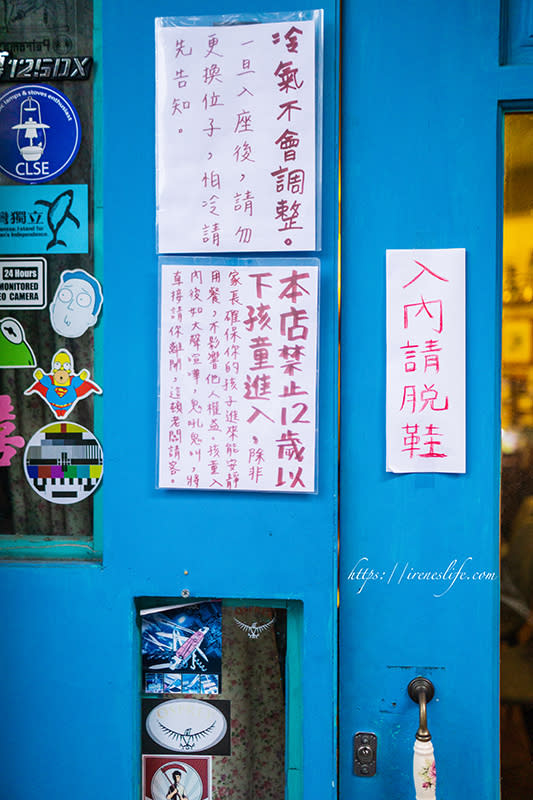 冷氣不會調整。
一旦入座後，請勿
更換位子，怕冷請
先告知。
本店禁止12歲以
下孩童進入。除非
家長確保你的孩子進來能安靜
用餐，不影響他人權益。孩童入
內後如大聲喧嘩，鬼吼鬼叫，將
直接請你離開，這頓老闆請客。
入內請脫鞋
125DX
lamps & stoves enthusiast
CLSE
灣獨立
24 Hours
MONITORED
EO CAMERA
喜
https://ireneslife.com